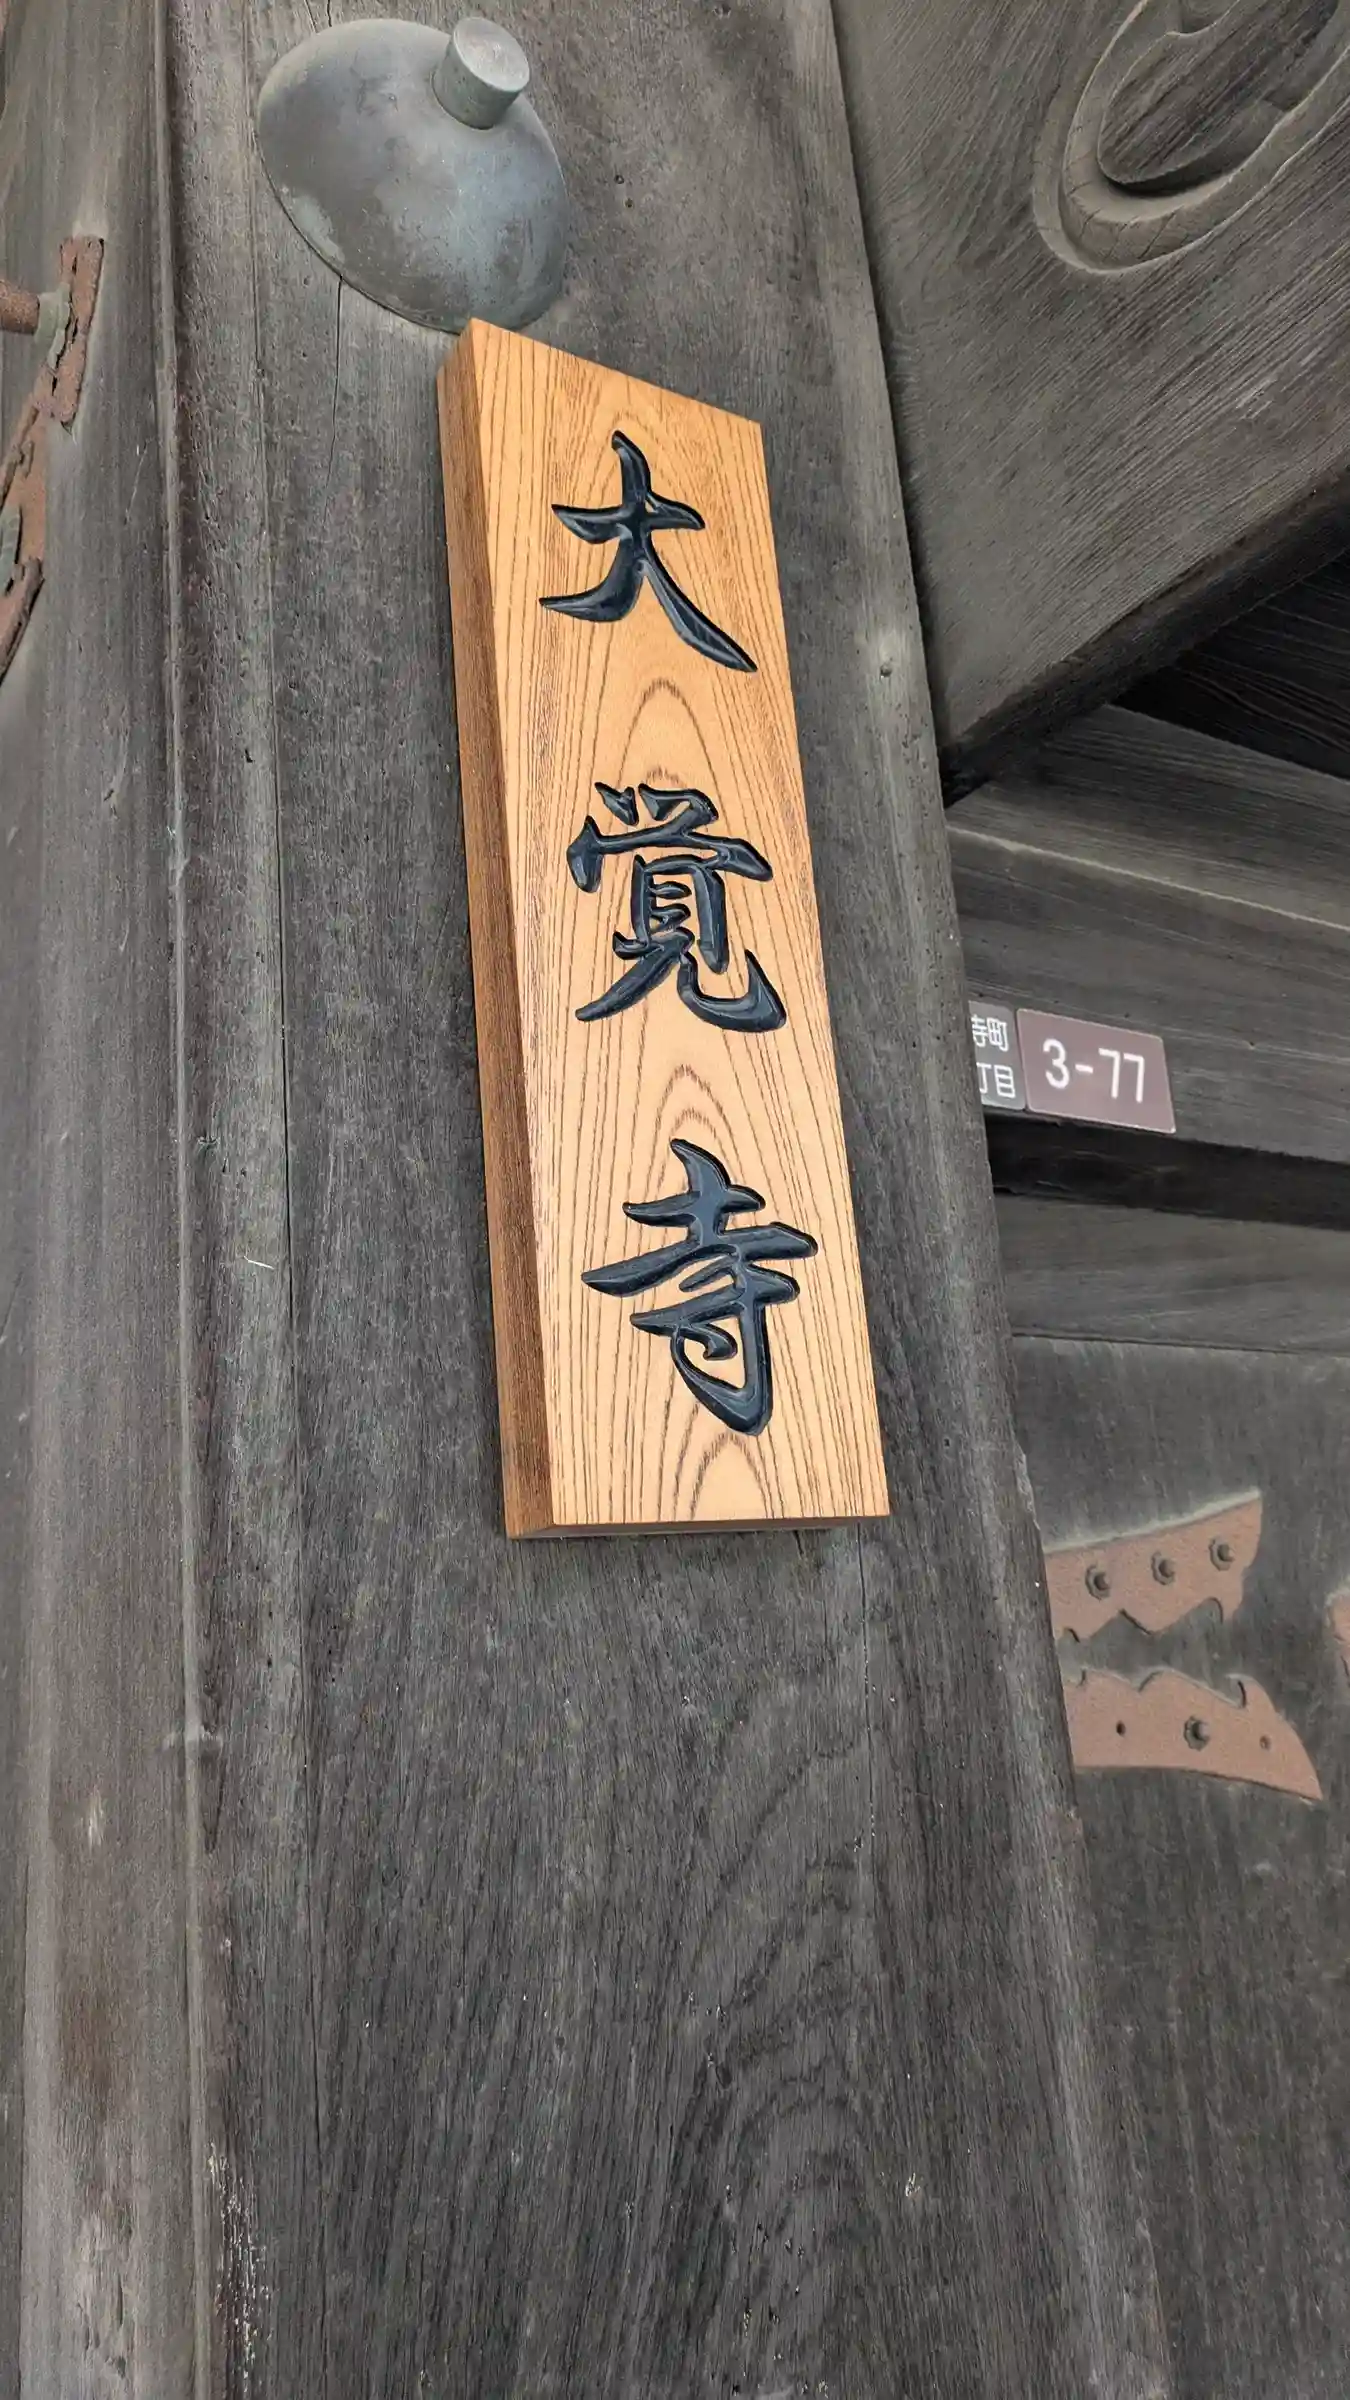 大覚寺
寺町
丁目
3-77